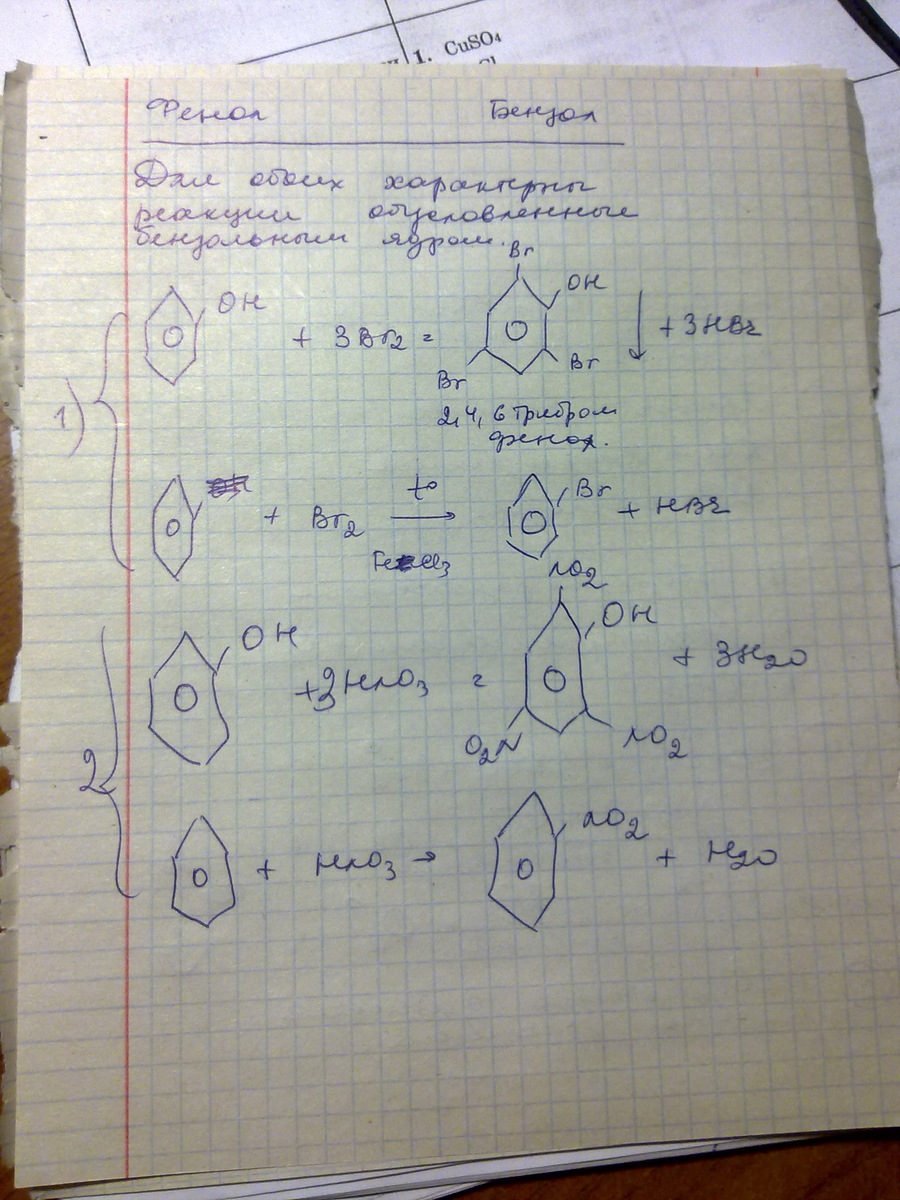 1. CuSO₄
Фенол Бензол
Для обоих характерны
реакции обусловленные
бензольным ядром.
OH + 3Br₂ = Br OH Br Br ↓ + 3HBr
1)
2,4,6 трибром
фенол.
+ Br₂ t° → FeCl₃ Br + HBr
OH + 3HNO₃ = NO₂ OH O₂N NO₂ + 3H₂O
2
+ HNO₃ → NO₂ + H₂O